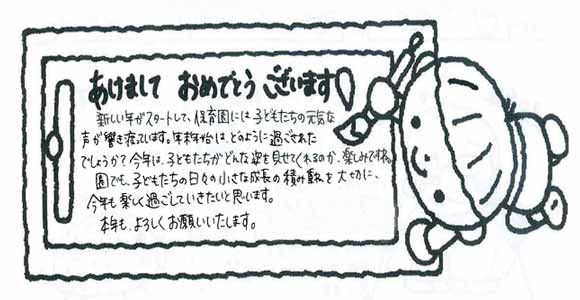 あけまして おめでとう ございます!
新しい年がスタートして、保育園には子どもたちの元気な
声が響き渡っています。年末年始は、どのように過ごされた
でしょうか?今年は、子どもたちがどんな姿を見せてくれるのか、楽しみですね。
園でも、子どもたちの日々の小さな成長の積み重ねを大切に、
今年も楽しく過ごしていきたいと思います。
本年も、よろしくお願いいたします。